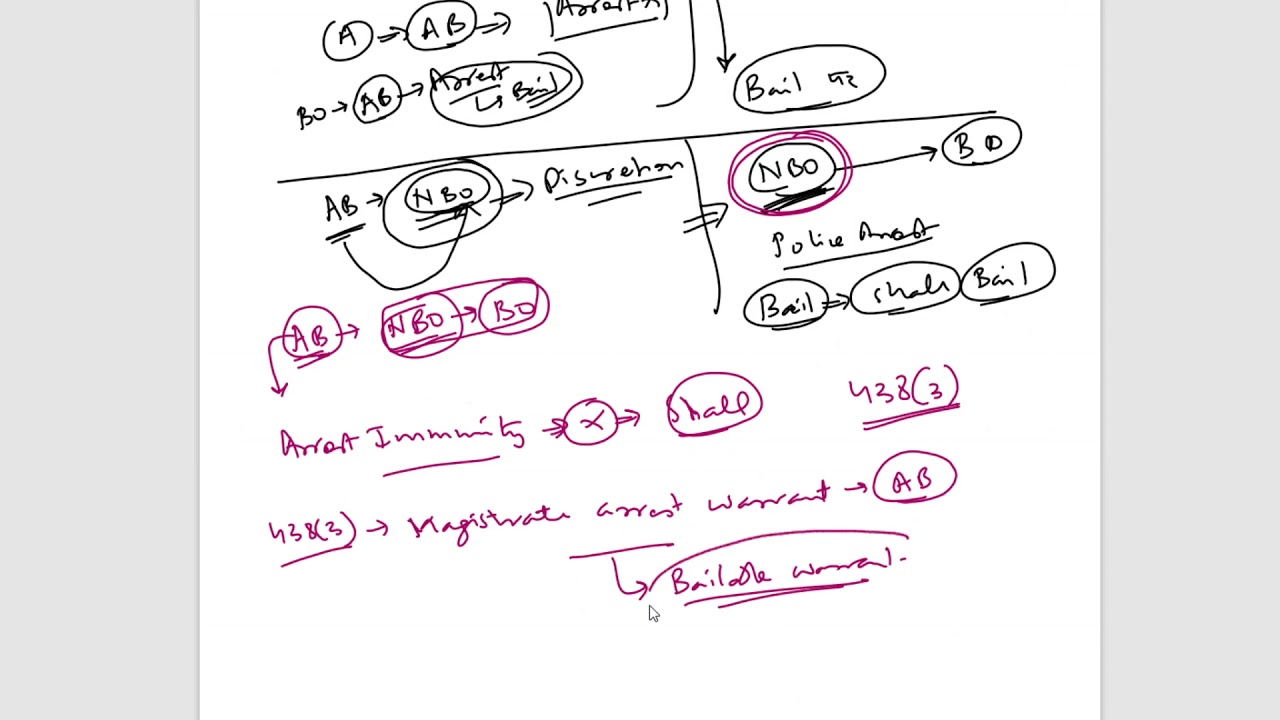 A ⇒ AB ⇒ Arrest x
BO → AB → Arrest
↳ Bail
Bail
AB → NBO ⇒ Discretion
NBO → BO
Police Arrest
Bail ⇒ shall Bail
AB → NBO → BO
Arrest Immunity ⇒ x ⇒ shall
438(3)
438(3) → Magistrate arrest warrant → AB
↳ Bailable warrant.